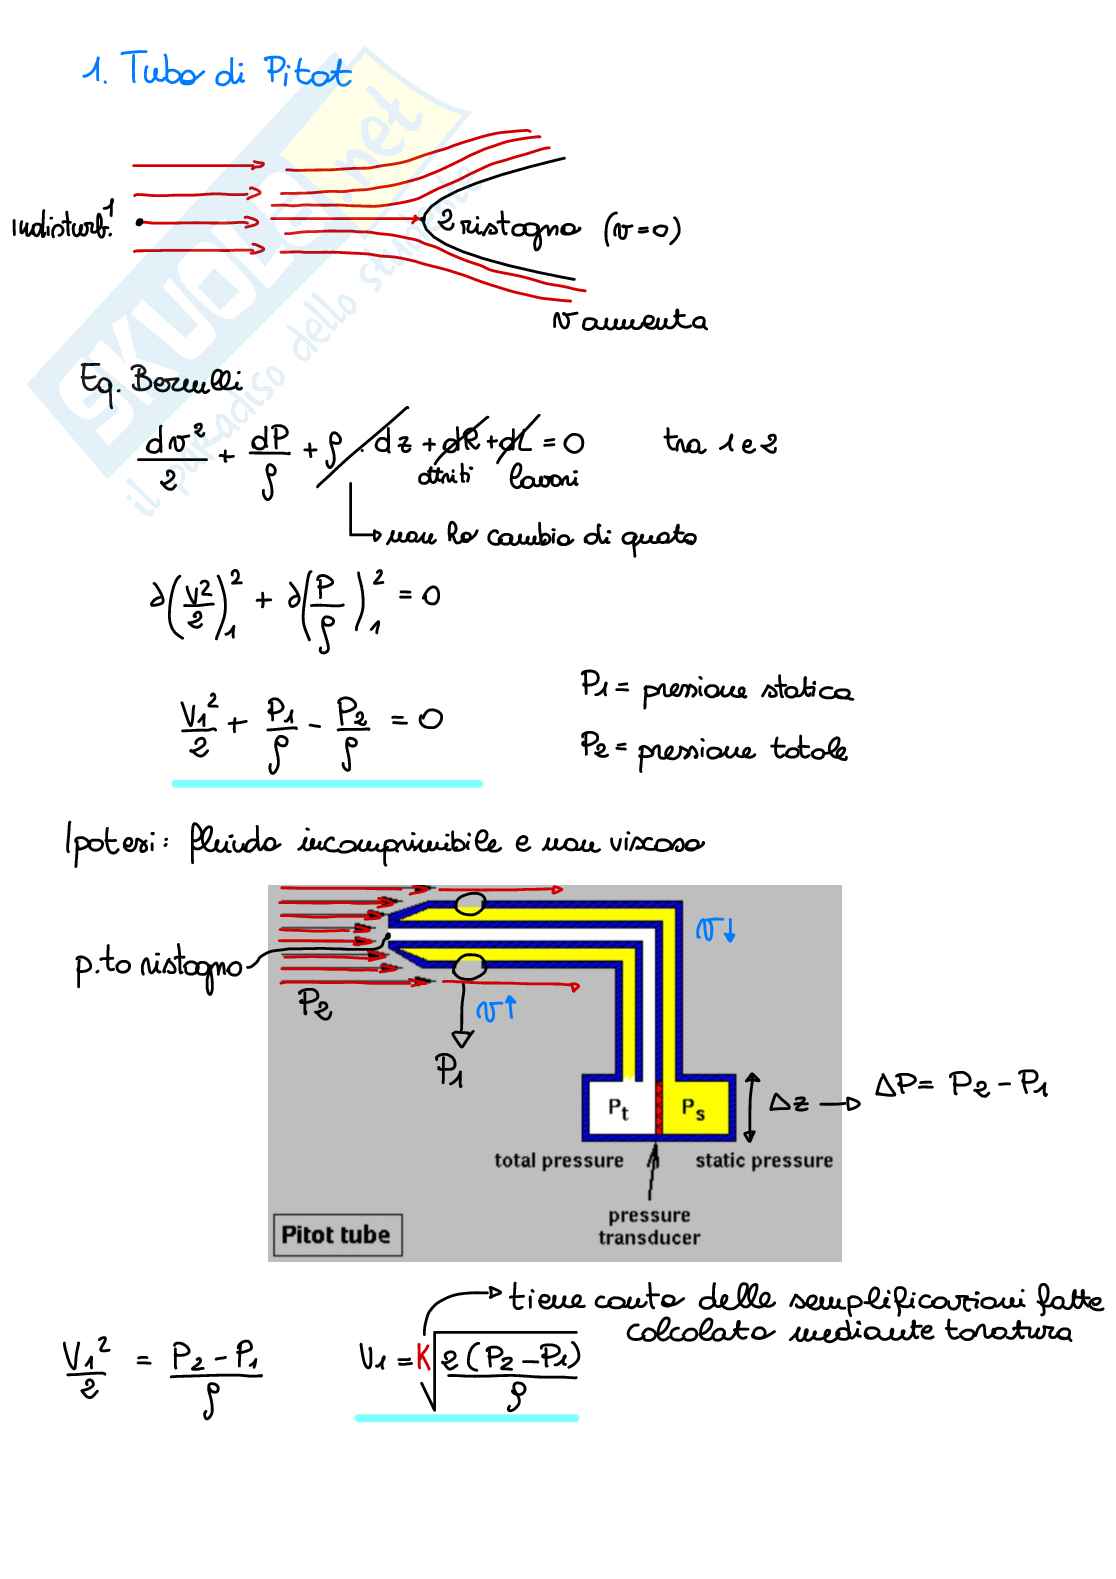 1. Tubo di Pitot
SKUOLA.net
il paradiso dello stu
indisturb. 1
2 ristagno (v=0)
v aumenta
Eq. Bernulli
dv²/2 + dP/ρ + ρ · dz + dR + dL = 0 tra 1 e 2
attriti lavori
non ho cambio di quota
∂(v²/2)₁² + ∂(P/ρ)₁² = 0
V₁²/2 + P₁/ρ - P₂/ρ = 0
P₁ = pressione statica
P₂ = pressione totale
Ipotesi: fluido incomprimibile e non viscoso
v↓
p.to ristagno
P₂
v↑
P₁
Pt Ps
Δz → ΔP = P₂ - P₁
total pressure static pressure
pressure
transducer
Pitot tube
tiene conto delle semplificazioni fatte
calcolato mediante taratura
V₁²/2 = P₂ - P₁/ρ V₁ = K √2(P₂ - P₁)/ρ